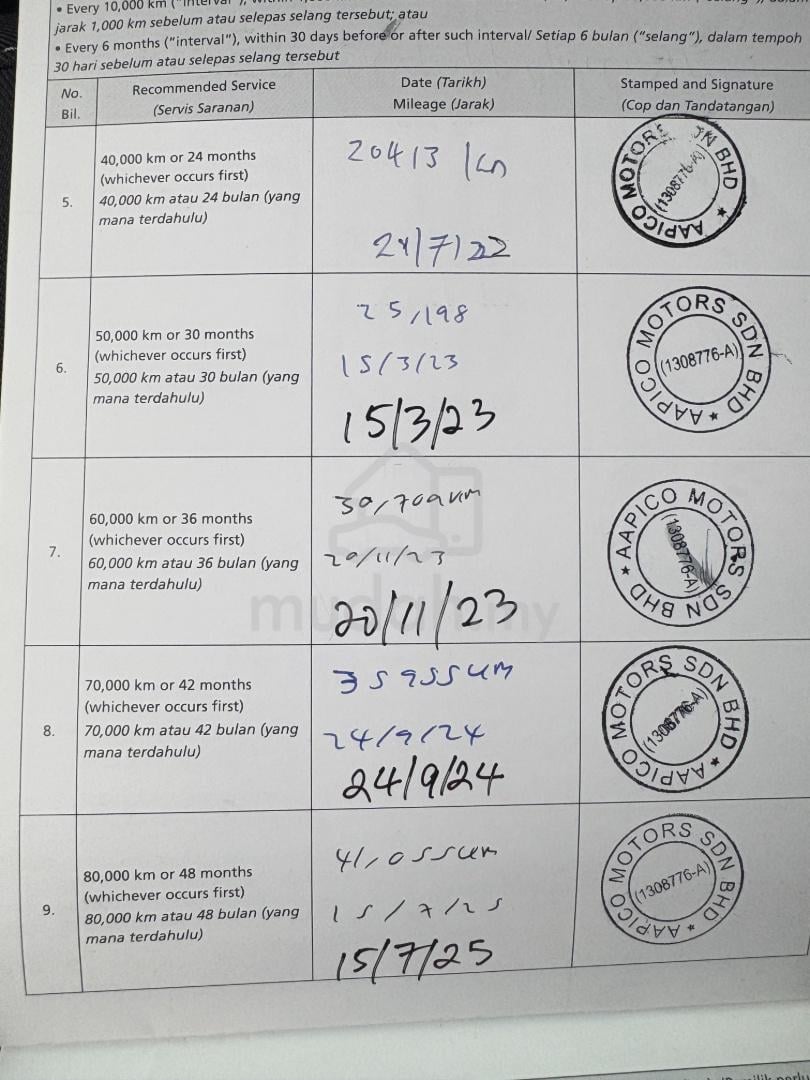 • Every 10,000 km ("interval"),
jarak 1,000 km sebelum atau selepas selang tersebut; atau
• Every 6 months ("interval"), within 30 days before or after such interval/ Setiap 6 bulan ("selang"), dalam tempoh
30 hari sebelum atau selepas selang tersebut
No.
Bil.
Recommended Service
(Servis Saranan)
Date (Tarikh)
Mileage (Jarak)
Stamped and Signature
(Cop dan Tandatangan)
5.
40,000 km or 24 months
(whichever occurs first)
40,000 km atau 24 bulan (yang
mana terdahulu)
20413 km
/7/22
AAPICO MOTORS SDN BHD
(1308776-A)
6.
50,000 km or 30 months
(whichever occurs first)
50,000 km atau 30 bulan (yang
mana terdahulu)
25,198
15/3/23
15/3/23
AAPICO MOTORS SDN BHD
(1308776-A)
7.
60,000 km or 36 months
(whichever occurs first)
60,000 km atau 36 bulan (yang
mana terdahulu)
30,709km
20/11/23
20/11/23
AAPICO MOTORS SDN BHD
(1308776-A)
mudah.my
8.
70,000 km or 42 months
(whichever occurs first)
70,000 km atau 42 bulan (yang
mana terdahulu)
35955km
24/9/24
24/9/24
AAPICO MOTORS SDN BHD
(1308776-A
9.
80,000 km or 48 months
(whichever occurs first)
80,000 km atau 48 bulan (yang
mana terdahulu)
41,055km
15/7/25
15/7/25
AAPICO MOTORS SDN BHD
(1308776-A)